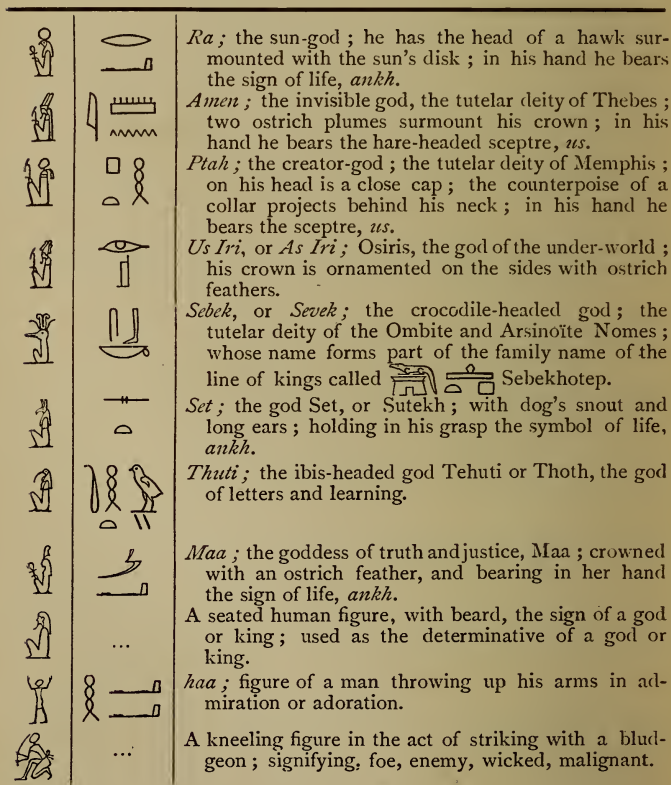 Ra ; the sun-god ; he has the head of a hawk sur-
mounted with the sun's disk ; in his hand he bears
the sign of life, ankh.
Amen ; the invisible god, the tutelar deity of Thebes ;
two ostrich plumes surmount his crown ; in his
hand he bears the hare-headed sceptre, us.
Ptah ; the creator-god ; the tutelar deity of Memphis ;
on his head is a close cap ; the counterpoise of a
collar projects behind his neck ; in his hand he
bears the sceptre, us.
Us Iri, or As Iri ; Osiris, the god of the under-world ;
his crown is ornamented on the sides with ostrich
feathers.
Sebek, or Sevek ; the crocodile-headed god ; the
tutelar deity of the Ombite and Arsinoïte Nomes ;
whose name forms part of the family name of the
line of kings called Sebekhotep.
Set ; the god Set, or Sutekh ; with dog's snout and
long ears ; holding in his grasp the symbol of life,
ankh.
Thuti ; the ibis-headed god Tehuti or Thoth, the god
of letters and learning.
Maa ; the goddess of truth and justice, Maa ; crowned
with an ostrich feather, and bearing in her hand
the sign of life, ankh.
... A seated human figure, with beard, the sign of a god
or king ; used as the determinative of a god or
king.
haa ; figure of a man throwing up his arms in ad-
miration or adoration.
... A kneeling figure in the act of striking with a blud-
geon ; signifying, foe, enemy, wicked, malignant.